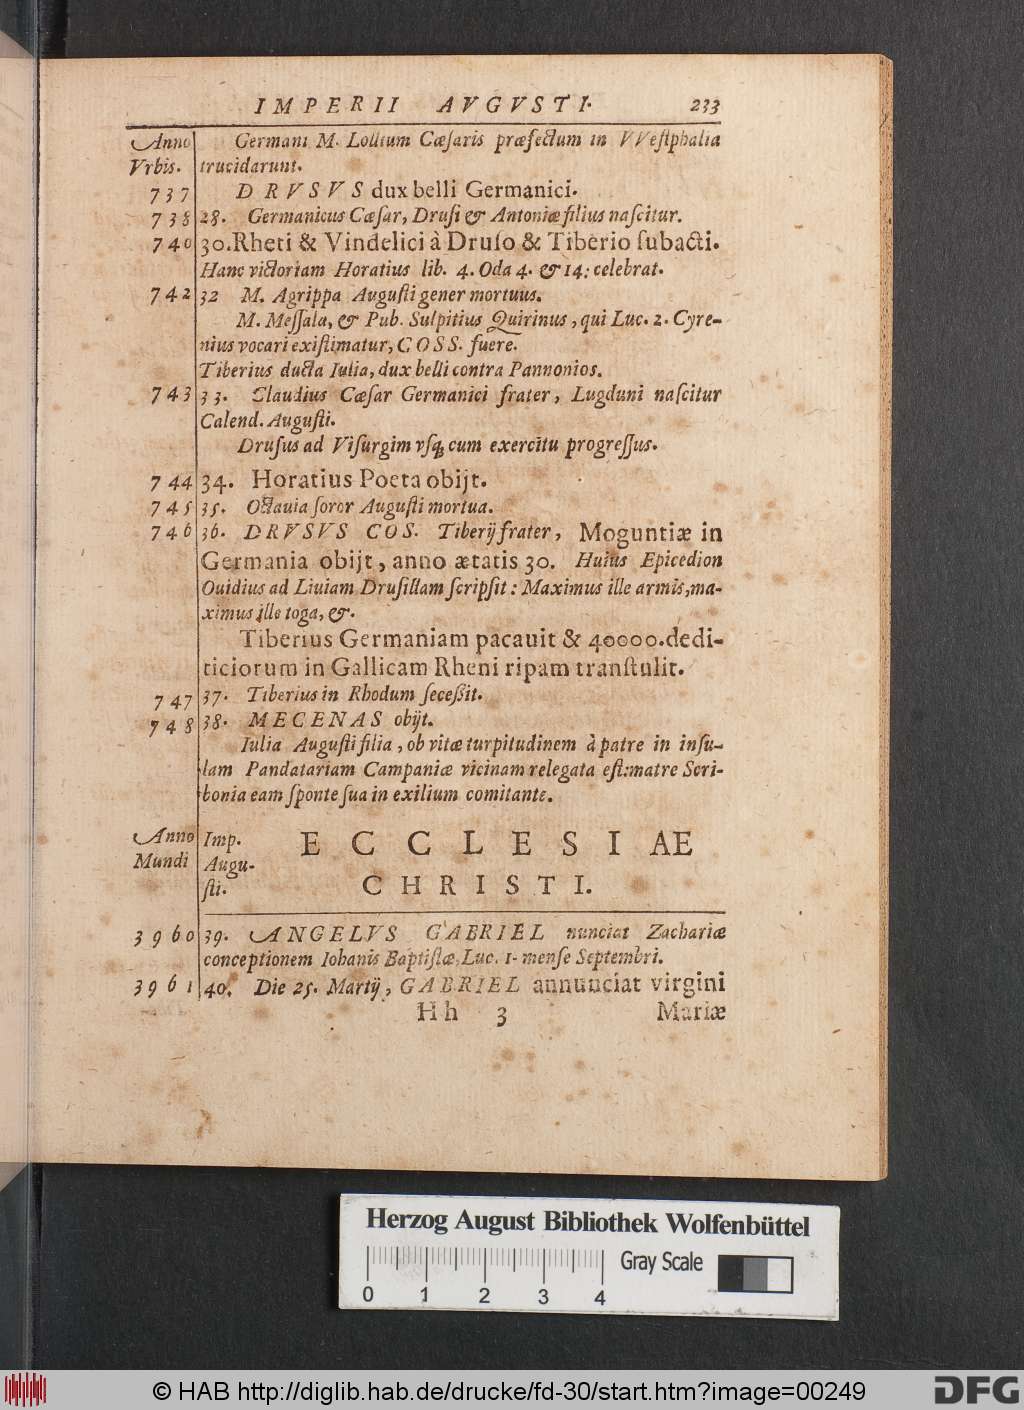 IMPERII AVGVSTI. 233
Anno Germani M. Lollium Cæſaris præfectum in VVeſtphalia
Vrbis. trucidarunt.
737 DRVSVS dux belli Germanici.
738 28. Germanicus Cæſar, Druſi & Antoniæ filius naſcitur.
740 30. Rheti & Vindelici à Druſo & Tiberio ſubacti.
Hanc victoriam Horatius lib. 4. Oda 4. & 14: celebrat.
742 32 M. Agrippa Auguſti gener mortuus.
M. Meſſala, & Pub. Sulpitius Quirinus, qui Luc. 2. Cyre-
nius vocari exiſtimatur, COSS. fuere.
Tiberius ducta Iulia, dux belli contra Pannonios.
743 33. Claudius Cæſar Germanici frater, Lugduni naſcitur
Calend. Auguſti.
Druſus ad Viſurgim vſq; cum exercitu progreſſus.
744 34. Horatius Poeta obijt.
745 35. Octauia ſoror Auguſti mortua.
746 36. DRVSVS COS. Tiberij frater, Moguntiæ in
Germania obijt, anno ætatis 30. Huius Epicedion
Ouidius ad Liuiam Druſillam ſcripſit: Maximus ille armis, ma-
ximus ille toga, &.
Tiberius Germaniam pacauit & 40000. dedi-
ticiorum in Gallicam Rheni ripam tranſtulit.
747 37. Tiberius in Rhodum ſeceßit.
748 38. MECENAS obijt.
Iulia Auguſti filia, ob vitæ turpitudinem à patre in inſu-
lam Pandatariam Campaniæ vicinam relegata eſt: matre Scri-
bonia eam ſponte ſua in exilium comitante.
Anno Mundi
Imp. Augu-
ſti.
ECCLESIAE
CHRISTI.
3960 39. ANGELVS GABRIEL nunciat Zachariæ
conceptionem Iohanis Baptiſtæ, Luc. 1. menſe Septembri.
3961 40. Die 25. Martij, GABRIEL annunciat virgini
Hh 3 Mariæ
Herzog August Bibliothek Wolfenbüttel
Gray Scale
0 1 2 3 4
© HAB http://diglib.hab.de/drucke/fd-30/start.htm?image=00249
DFG